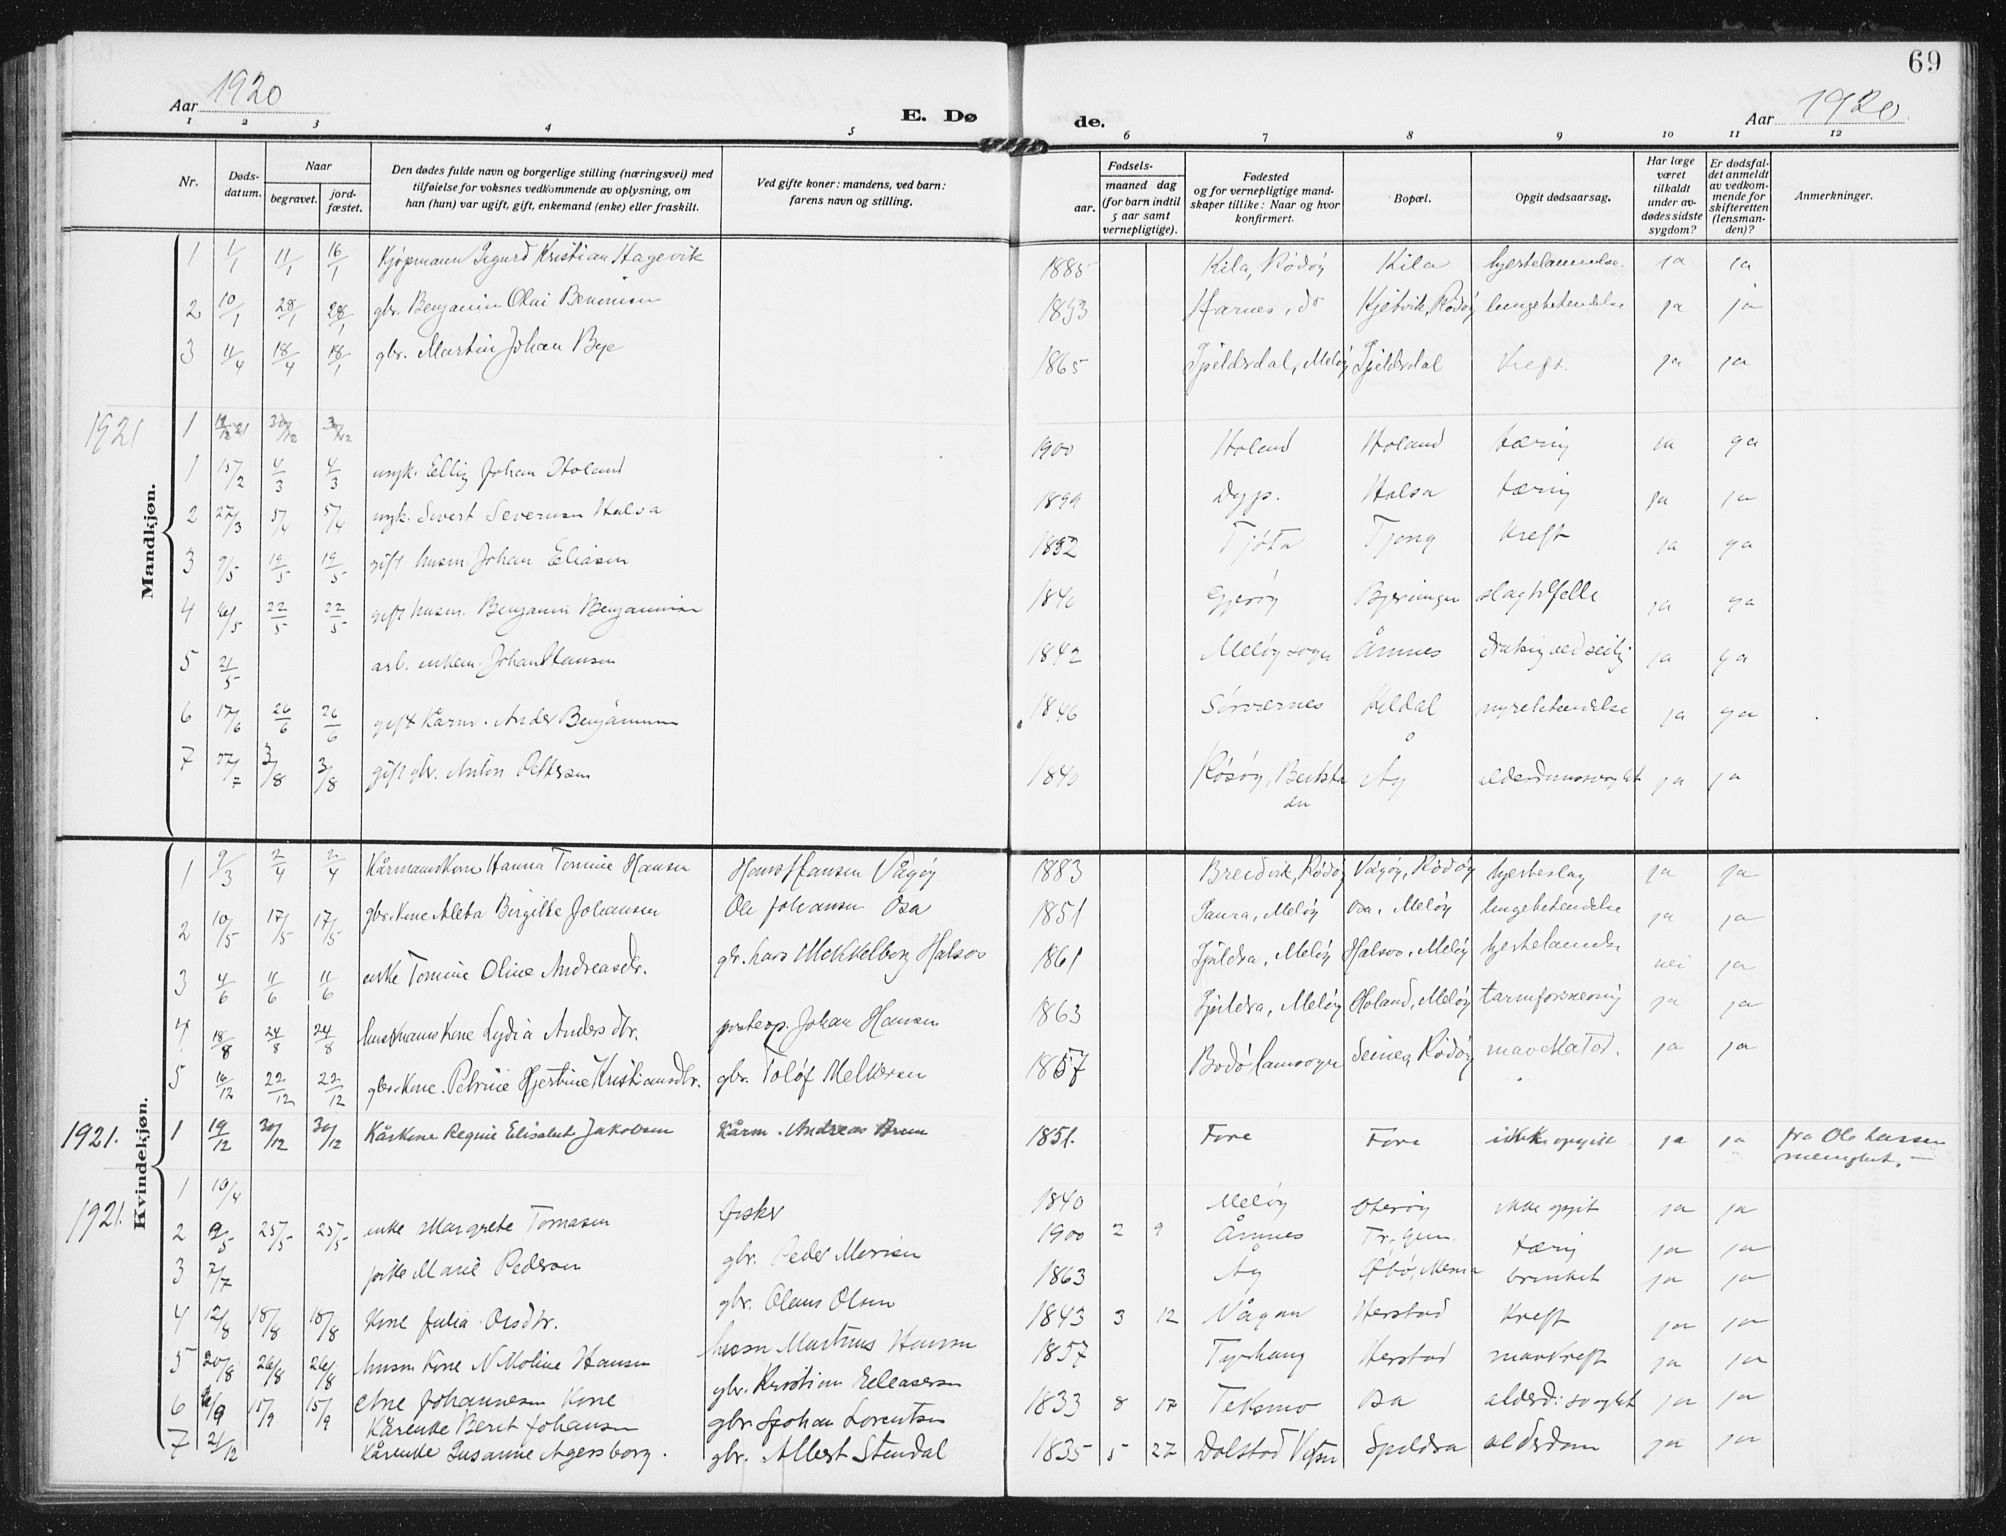 69
Aar 1920
E. Dø
de.
Aar 1920.
1 2 3 4 5 6 7 8 9 10 11 12
Nr.
Døds-
datum.
Naar
begravet.
jord-
fæstet.
Den dødes fulde navn og borgerlige stilling (næringsvei) med
tilføielse for voksnes vedkommende av oplysning, om
han (hun) var ugift, gift, enkemand (enke) eller fraskilt.
Ved gifte koner: mandens, ved barn:
farens navn og stilling.
Fødsels-
aar.
maaned dag
(for barn indtil
5 aar samt
vernepligtige).
Fødested
og for vernepligtige mand-
skaper tillike: Naar og hvor
konfirmert.
Bopæl.
Opgit dødsaarsag.
Har læge
været
tilkaldt
under av-
dødes sidste
sygdom?
Er dødsfal-
det anmeldt
av vedkom-
mende for
skifteretten
(lensman-
den)?
Anmerkninger.
Mandkjøn.
1 1/1 11/1 16/1 Kjøpmann Sigurd Kristian Hagevik 1885 Kila, Rødøy Kila hjertelammelse. ja ja
2 10/1 28/1 28/1 gbr. Benjamin Olai Bennisen 1893 Harnes, do Kjelvik, Rødøy lungebetendelse ja ja
3 11/4 18/4 18/1 gbr. Martin Johan Bye 1865 Spildrdal, Meløy Spildrdal Kreft. ja ja
1921
1 19/12 21 30/12 30/12 1900 Holand Holand tæring ja ja
1 15/2 4/3 4/3 ungk. Ellig Johan Holand 1899 Dyp. Halsa tæring ja ja
2 27/3 5/4 5/4 ungk. Sivert Severinsen Halsa 1832 Tjøta Tjong Kreft ja ja
3 9/5 19/5 19/5 gift husm. Johan Eliasen 1840 Gjerøy slagtilfelle ja ja
4 6/5 22/5 22/5 gift husm. Benjamin Benjaminsen 1842 Meløy sogn Åmnes ja ja
5 21/5 arb. enkem. Johan Hansen 1846 Sørværnes Keldal nyrebetendelse ja ja
6 17/6 26/6 26/6 gift Kårm. Ander Benjaminsen
7 27/7 3/8 3/8 gift gbr. Anton Pettersen 1840 Røsøy, Åg ja ja
Kvindekjøn.
1 9/3 2/4 2/4 Kårmanns Kone Hanna Tomine Hansen Hans Hansen Vågøy 1883 Breidvik, Rødøy Vågøy, Rødøy hjerteslag ja ja
2 10/5 17/5 17/5 gbr. Kone Aleta Birgitte Johansen Ole Johansen Osa 1851 Saura, Meløy Osa, Meløy lungebetendelse ja ja
3 4/6 11/6 11/6 enke Tomine Oline Andreasdr. gbr. Lars Mekkelborg Halsos 1861 Spildra, Meløy Halsos, Meløy hjertelamelse nei ja
4 18/8 24/8 24/8 husmanns Kone Lydia Andersdtr. postexp. Johan Hansen 1863 Spildra, Meløy Holand, Meløy ja ja
5 16/12 22/12 22/12 gbr. Kone. Petrine Hjertine Kristiansdtr. gbr. Tolóf Melkersen 1857 Bodø landsogn Seines, Rødøy mavekatar. ja ja
1921.
1 19/12 30/12 30/12 Kårkone Regine Elisabet Jakobsen Kårm. Andreas Brun 1851. Fore Fore ikke opgitt ja ja fra Ole Larsen
menighet.
1921.
1 10/4 Fisker 1840 Meløy Oterøy ikke opgit ja ja
2 9/5 25/5 25/5 enke Margrete Tomasen gbr. Peder 1900 2 9 Åmnes tæring ja ja
3 7/7 pike Marie Pedersen gbr. Olaus Olsen 1863 Åg ja ja
4 12/8 18/8 18/8 Kone Julia Olsdtr. husm Martinus Hansen 1843 3 12 Vågan Herstad Kreft ja ja
5 20/8 26/8 26/8 husm Kone N Moline Hansen gbr. Kristian Eeleasersen 1857 Herstad mavkreft ja ja
6 6/9 15/9 15/9 Ane Johannesen Kone gbr. Johan Lorentsen 1833 8 17 Teksmo Osa ja ja
Kårenke Beret Johansen
7 21/12 Kårenke Susanne Agersborg. gbr. Albert Stendal 1835 5 27 Dolstad Spildra alderdom ja ja